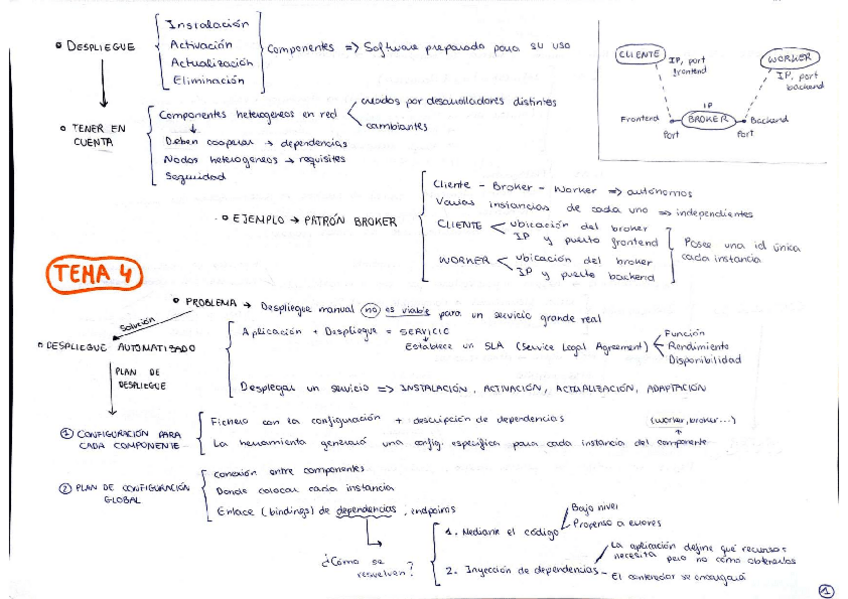 • DESPLIEGUE
Instalación
Activación
Actualización
Eliminación
Componentes => Software preparado para su uso
• TENER EN
CUENTA
Componentes heterogéneos en red
creados por desarrolladores distintos
cambiantes
Deben cooperar → dependencias
Nodos heterogéneos → requisitos
Seguridad
CLIENTE
IP, port
frontend
WORKER
IP, port
backend
IP
Frontend
BROKER
Backend
Port
Port
• EJEMPLO → PATRÓN BROKER
Cliente - Broker - Worker => autónomos
Varias instancias de cada uno => independientes
CLIENTE
ubicación del broker
IP y puerto frontend
WORKER
ubicación del broker
IP y puerto backend
Posee una id única
cada instancia
TEMA 4
• PROBLEMA → Despliegue manual no es viable para un servicio grande real
Solución
• DESPLIEGUE AUTOMATIZADO
Aplicación + Despliegue = SERVICIO
Establece un SLA (Service Legal Agreement)
Función
Rendimiento
Disponibilidad
Desplegar un servicio => INSTALACIÓN, ACTIVACIÓN, ACTUALIZACIÓN, ADAPTACIÓN
PLAN DE
DESPLIEGUE
① CONFIGURACIÓN PARA
CADA COMPONENTE
Fichero con la configuración + descripción de dependencias
(worker, broker...)
La herramienta generará una config. específica para cada instancia del componente
② PLAN DE CONFIGURACIÓN
GLOBAL
Conexión entre componentes
Donde colocar cada instancia
Enlace (bindings) de dependencias, endpoints
¿Cómo se
resuelven?
1. Mediante el código
Bajo nivel
Propenso a errores
2. Inyección de dependencias
La aplicación define qué recursos
necesita pero no cómo obtenerlos
El contenedor se encargará
①